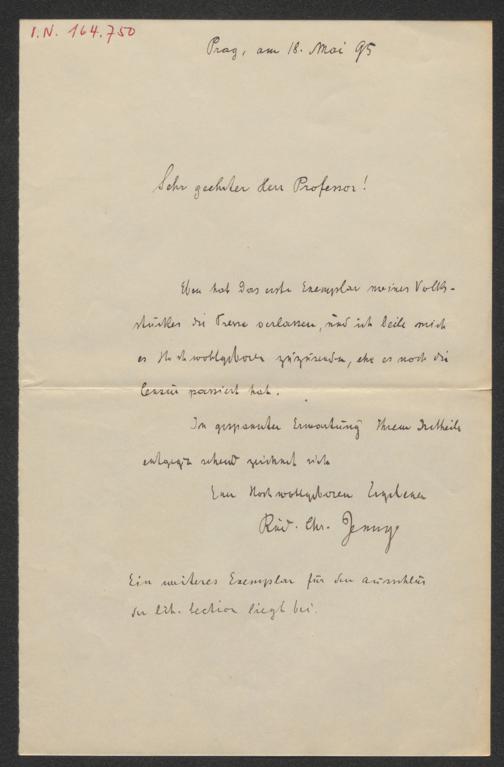 I.N. 164.750
Prag, am 18. Mai 95
Sehr geehrter Herr Professor!
Eben hat das erste Exemplar meines Volks-
stückes die Presse verlassen, und ich beile mich
es Hochwohlgeboren zuzusenden, ehe es noch die
Censur passiert hat.
In gespannter Erwartung Ihrem Urtheile
entgegen sehend zeichnet sich
Euer Hochwohlgeboren Ergebener
Rud. Chr. Jenny
Ein weiteres Exemplar für den ausschuss
der lit. Section liegt bei.